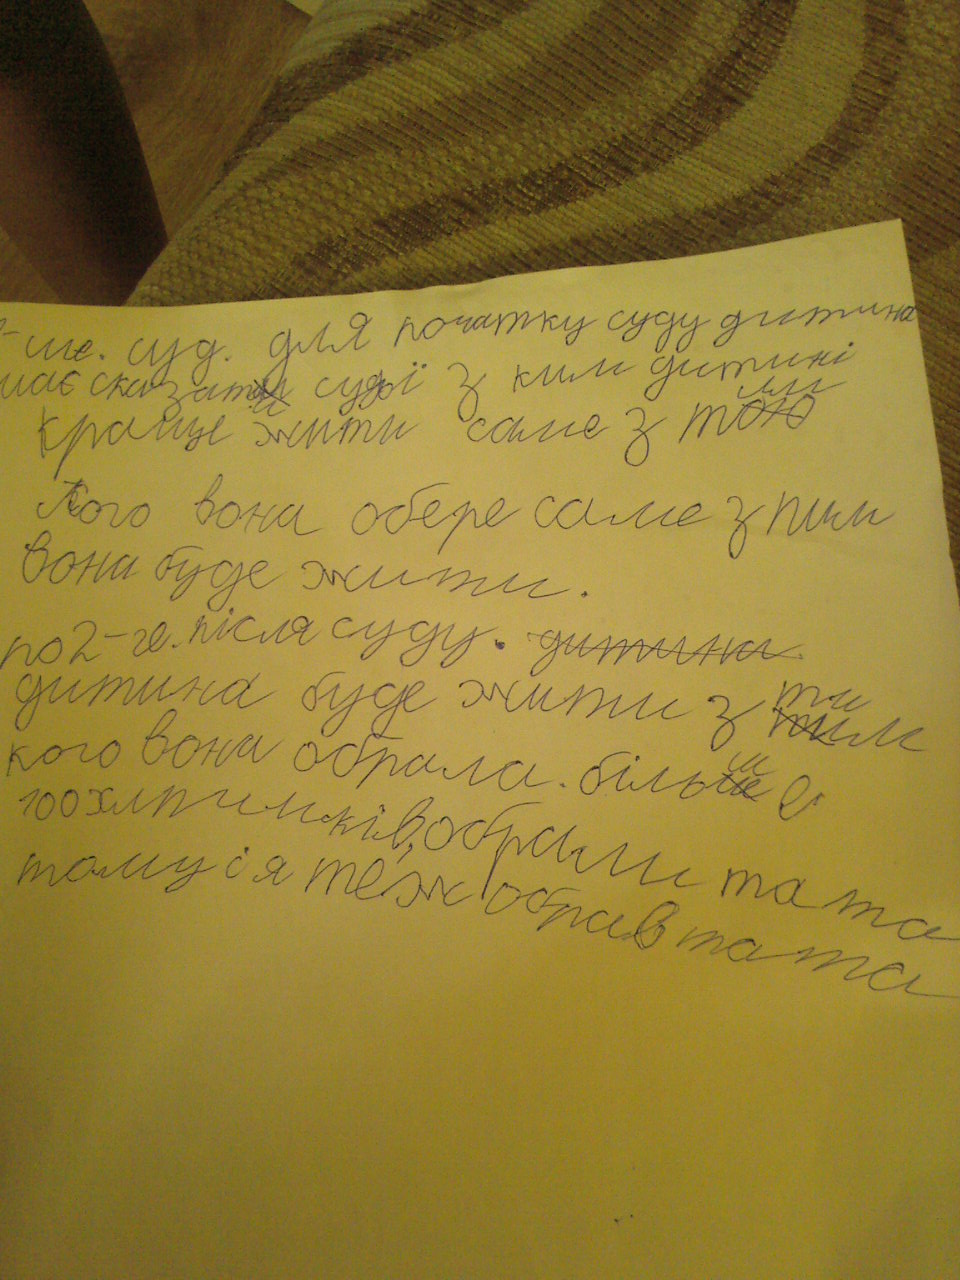 -ше. суд. для початку суду дитина
має сказати судді з ким дитині
краще жити саме з тими
Кого вона обере саме з ним
вона буде жити.
по 2-ге. після суду. дитина
дитина буде жити з тим
кого вона обрала. більш е
100 хлпчиків, обрали тата
тому і я теж обрав тата